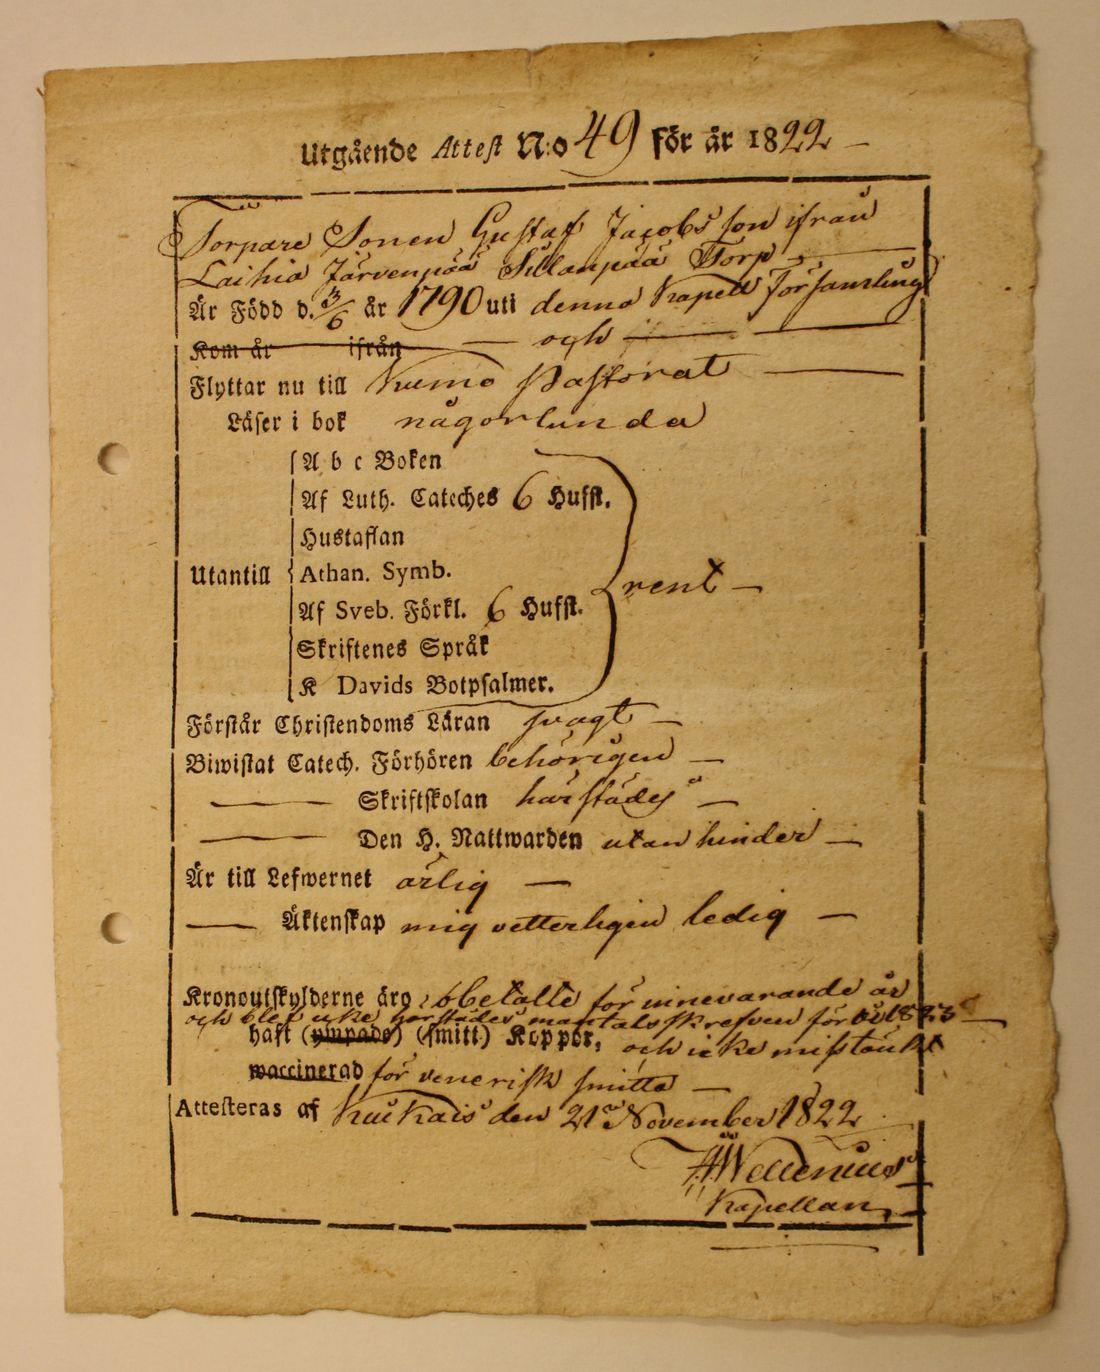 Utgående Attest N:o 49 för år 1822 —
Torpare Sonen Gustaf Jacobs son ifrån
Laihia Järvenpää Sillanpää Torp —
Är Född d. 3/6 år 1790 uti denna Kapell Församling
Kom år ifrån — och —
Flyttar nu till Kumo Pastorat —
Läser i bok någorlunda
A b c Boken
Af Luth. Cateches 6 Hufst.
Hustaflan
Utantill Athan. Symb. rent —
Af Sveb. Förkl. 6 Hufst.
Skriftenes Språk
K Davids Botpsalmer.
Förstår Christendoms Läran svagt —
Biwistat Catech. Förhören behörigen —
— Skriftskolan härstädes —
— Den H. Nattwarden utan hinder —
Är till Lefwernet ärlig —
— Äktenskap mig vetterligen ledig —
Kronoutskylderne äro obetalte för innevarande år
och blef icke härstädes mantalsskrefven för år 1823 —
haft (ympade) (smitt) Koppor, och icke misstänkt
waccinerad för venerisk smitta —
Attesteras af den 21 November 1822
Kapellan